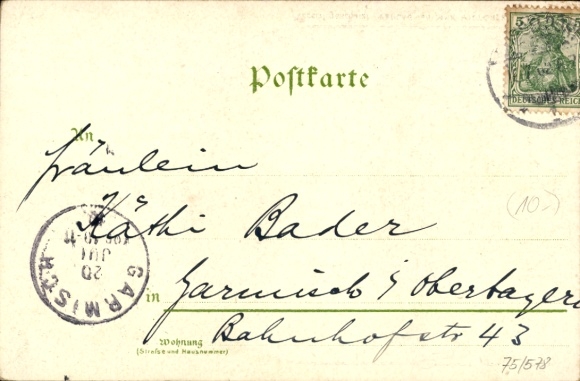 5
DEUTSCHES REICH
Postkarte
An
Fräulein
Käthi Bader
(10.-)
GARMISCH
20
JUL
in Garmisch / Oberbayern
Wohnung
(Strafse und Hausnummer)
Bahnhofstr 43
75/578